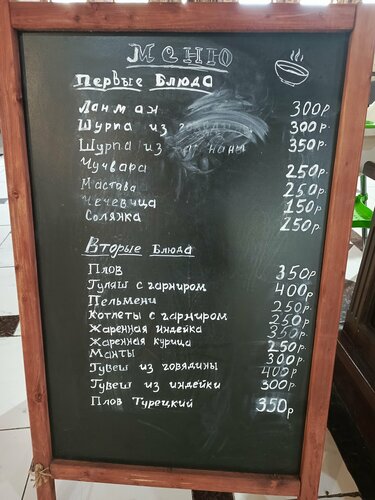 Меню
Первые Блюда
Лагман 300р.
Шурпа из говядины 300р.
Шурпа из 350р.
Чучвара 250р
Мастава 250р.
Чечевица 150р
Солянка 250р.
Вторые Блюда
Плов 350р
Гуляш с гарниром 400р.
Пельмени 250р
Котлеты с гарниром 250р
Жаренная индейка 350р
Жаренная курица 250р.
Манты 300р
Гувеш из говядины 400р
Гувеш из индейки 300р.
Плов Турецкий 350р